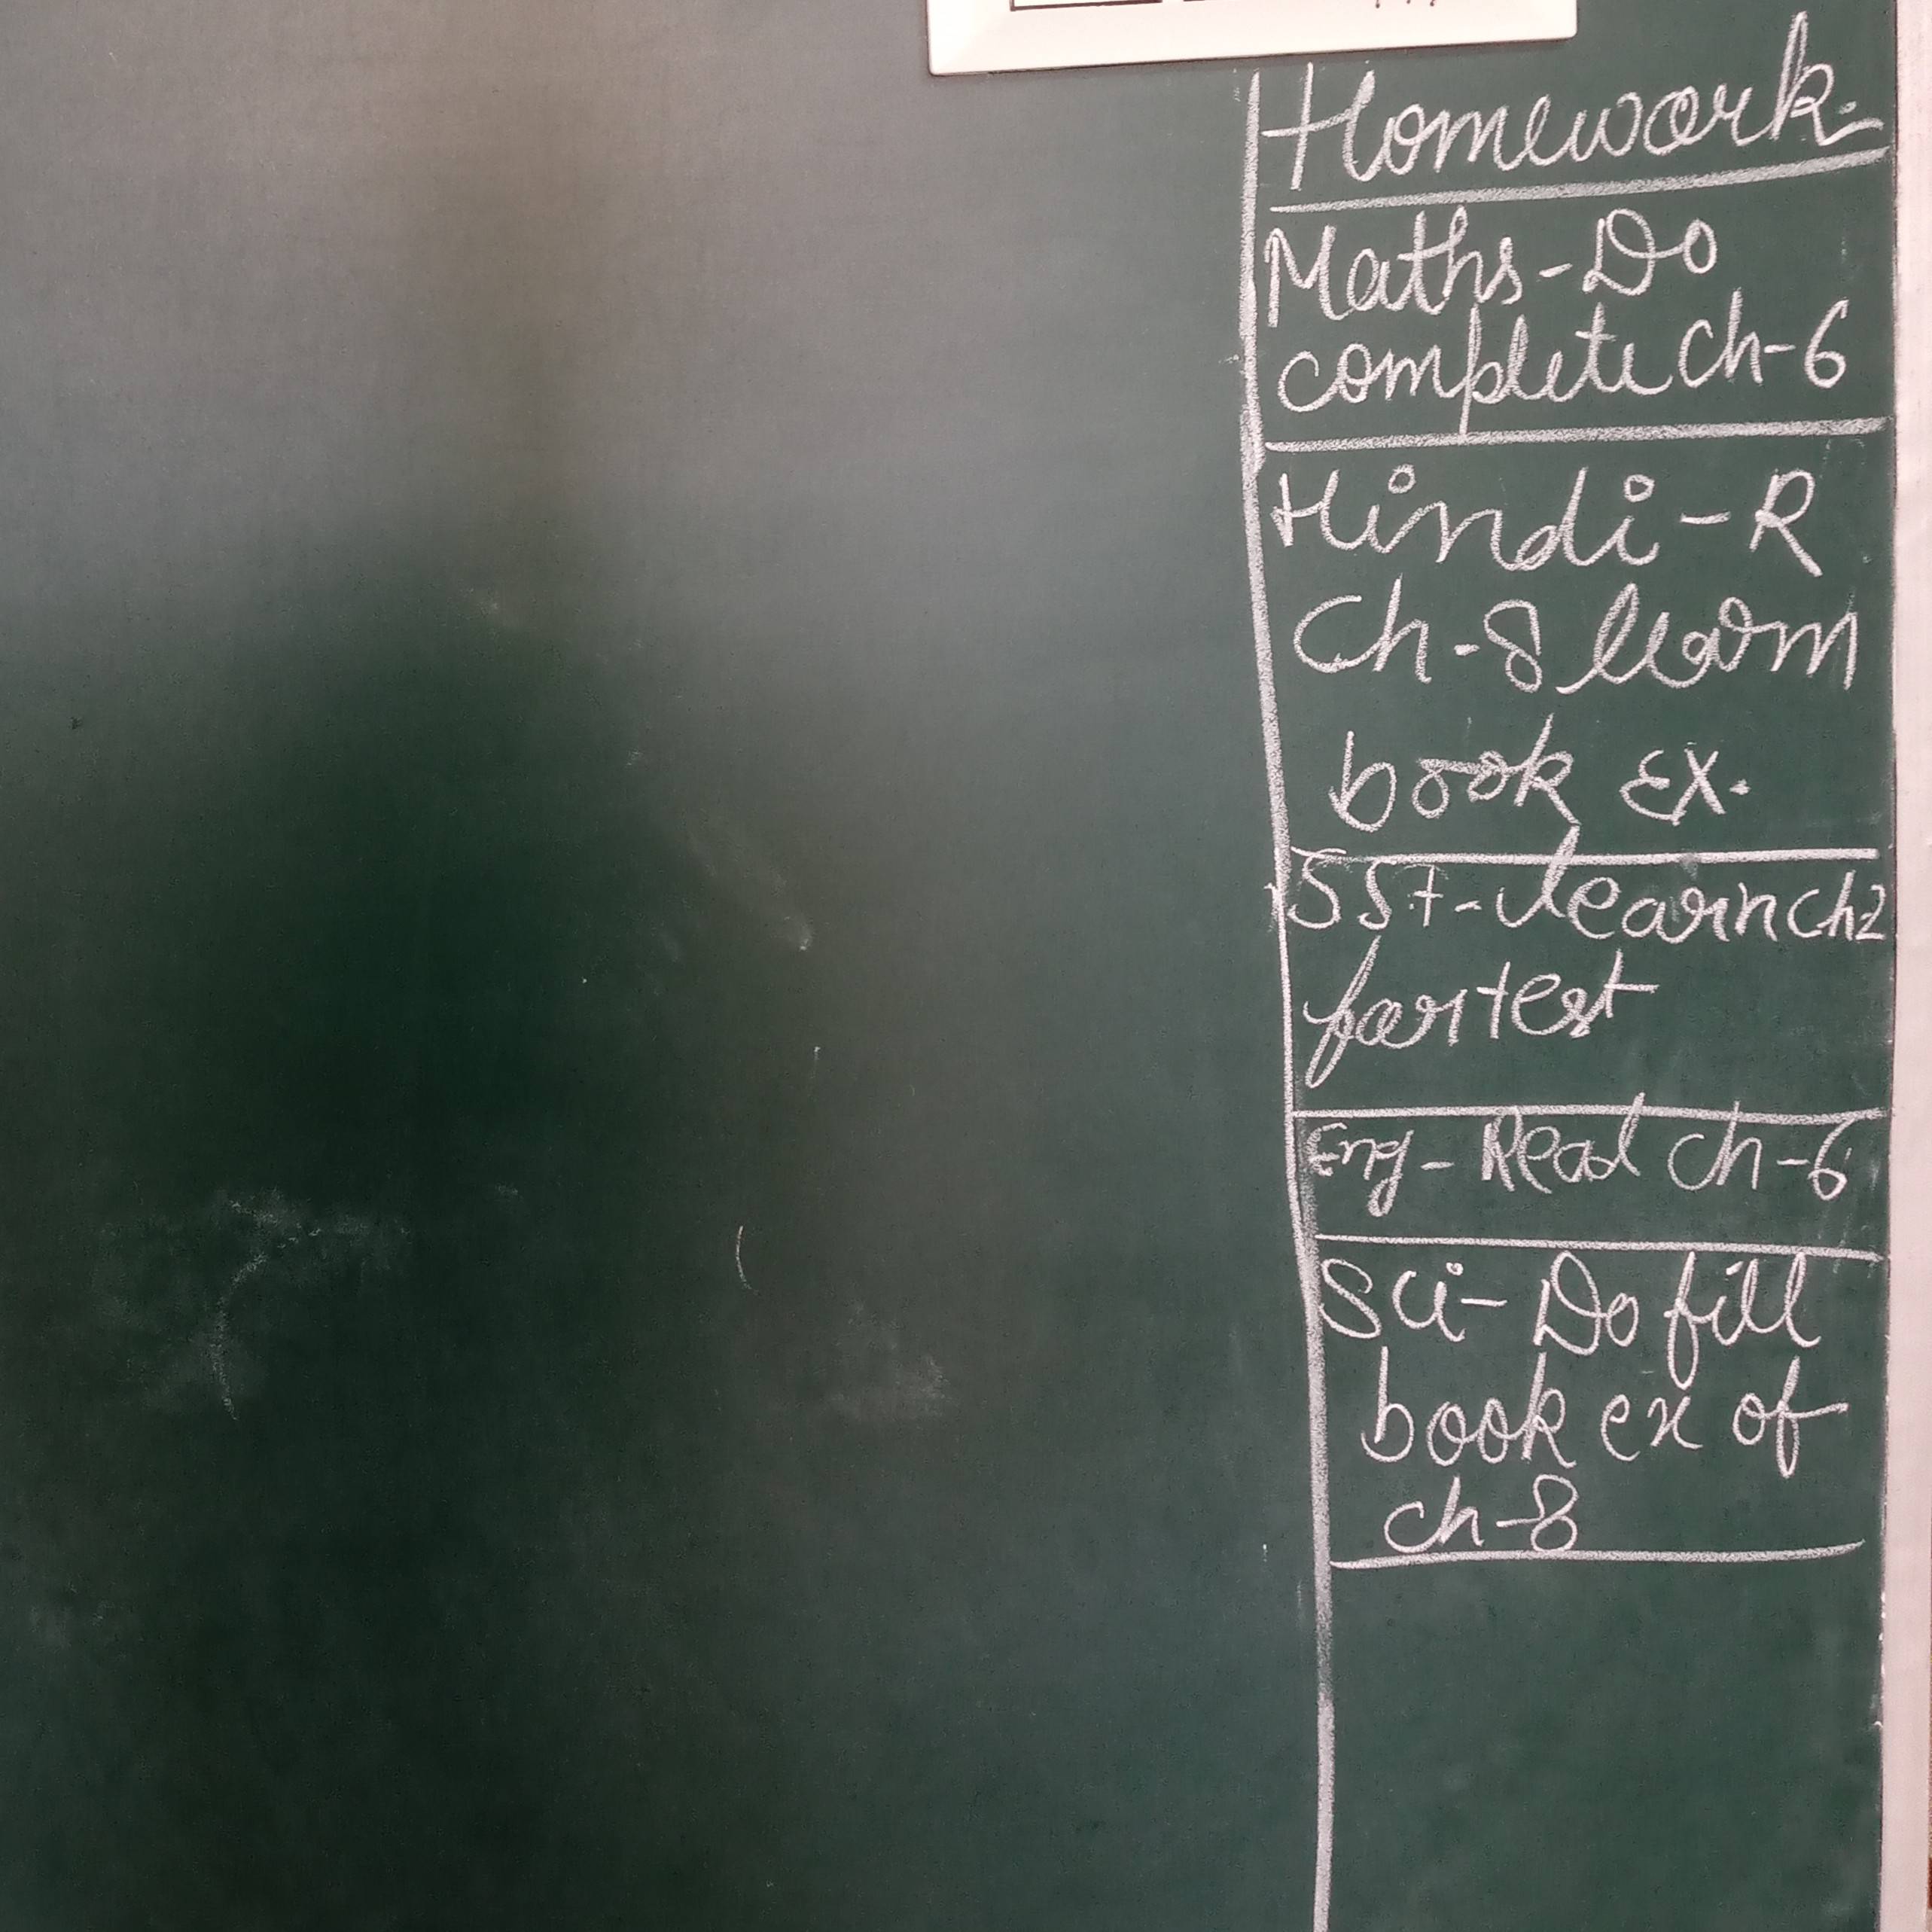 Homework.
Maths-Do
complete Ch-6
Hindi-R
Ch-8 learn
book EX.
SST-learn ch-2
for test
Eng- Read ch-6
Sci- Do fill
book ex of
ch-8